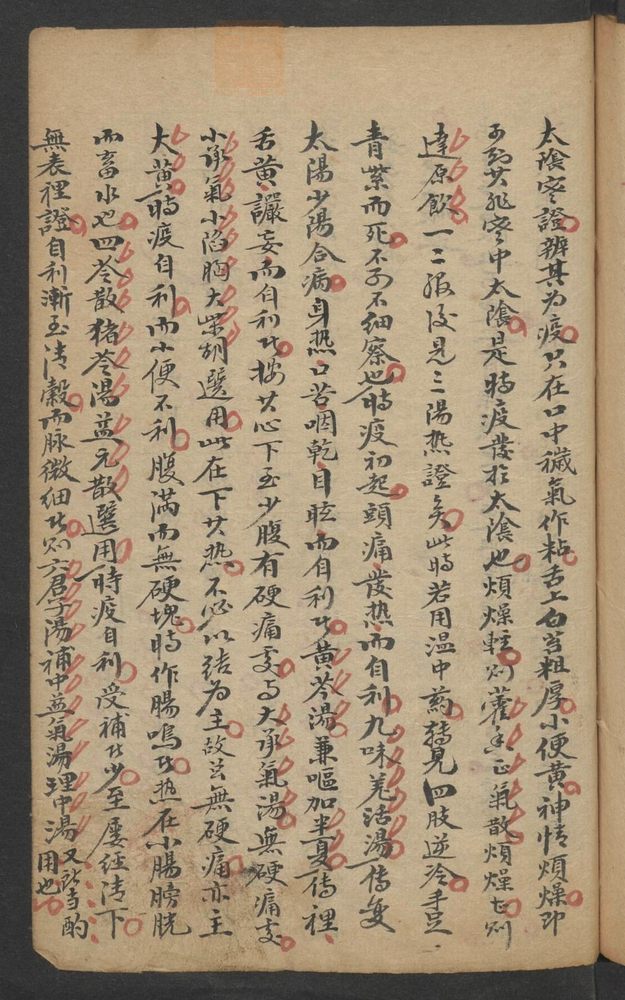 太陰寒證辨其为疫只在口中穢氣作粘舌上白苔粗厚小便黄神情煩燥即
可知其非寒中太陰是時疫發於太陰也煩燥輕則藿香正氣散煩燥甚則
達原飲一二服後見三陽熱證矣此時若用温中药轉見四肢逆冷手足
青紫而死不可不細察也時疫初起頭痛發热而自利九味羌活湯傳変
太陽少陽合病身热口苦咽乾目眩而自利者黄芩湯兼嘔加半夏傳裡
舌黄讝妄而自利者按其心下至少腹有硬痛处与大承氣湯無硬痛处
小承氣小陷胸大柴胡選用此在下其热不必以結为主故其無硬痛亦主
大黄時疫自利而小便不利腹满而無硬塊時作腸鳴者热在小腸膀胱
而畜水也四苓散猪苓湯益元散選用時疫自利受補者少至屢經清下
無表裡證自利漸至清穀而脉微细者則六君子湯補中益氣湯理中湯又所当酌
用也